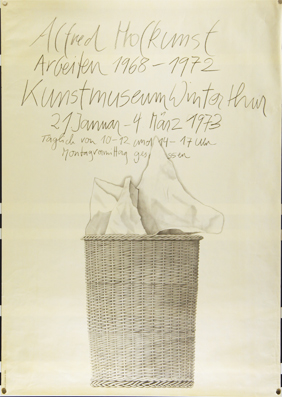 Alfred Hofkunst
Arbeiten 1968 – 1972
Kunstmuseum Winterthur
21 Januar – 4 März 1973
Täglich von 10 – 12 und 14 – 17 Uhr
Montagmittag